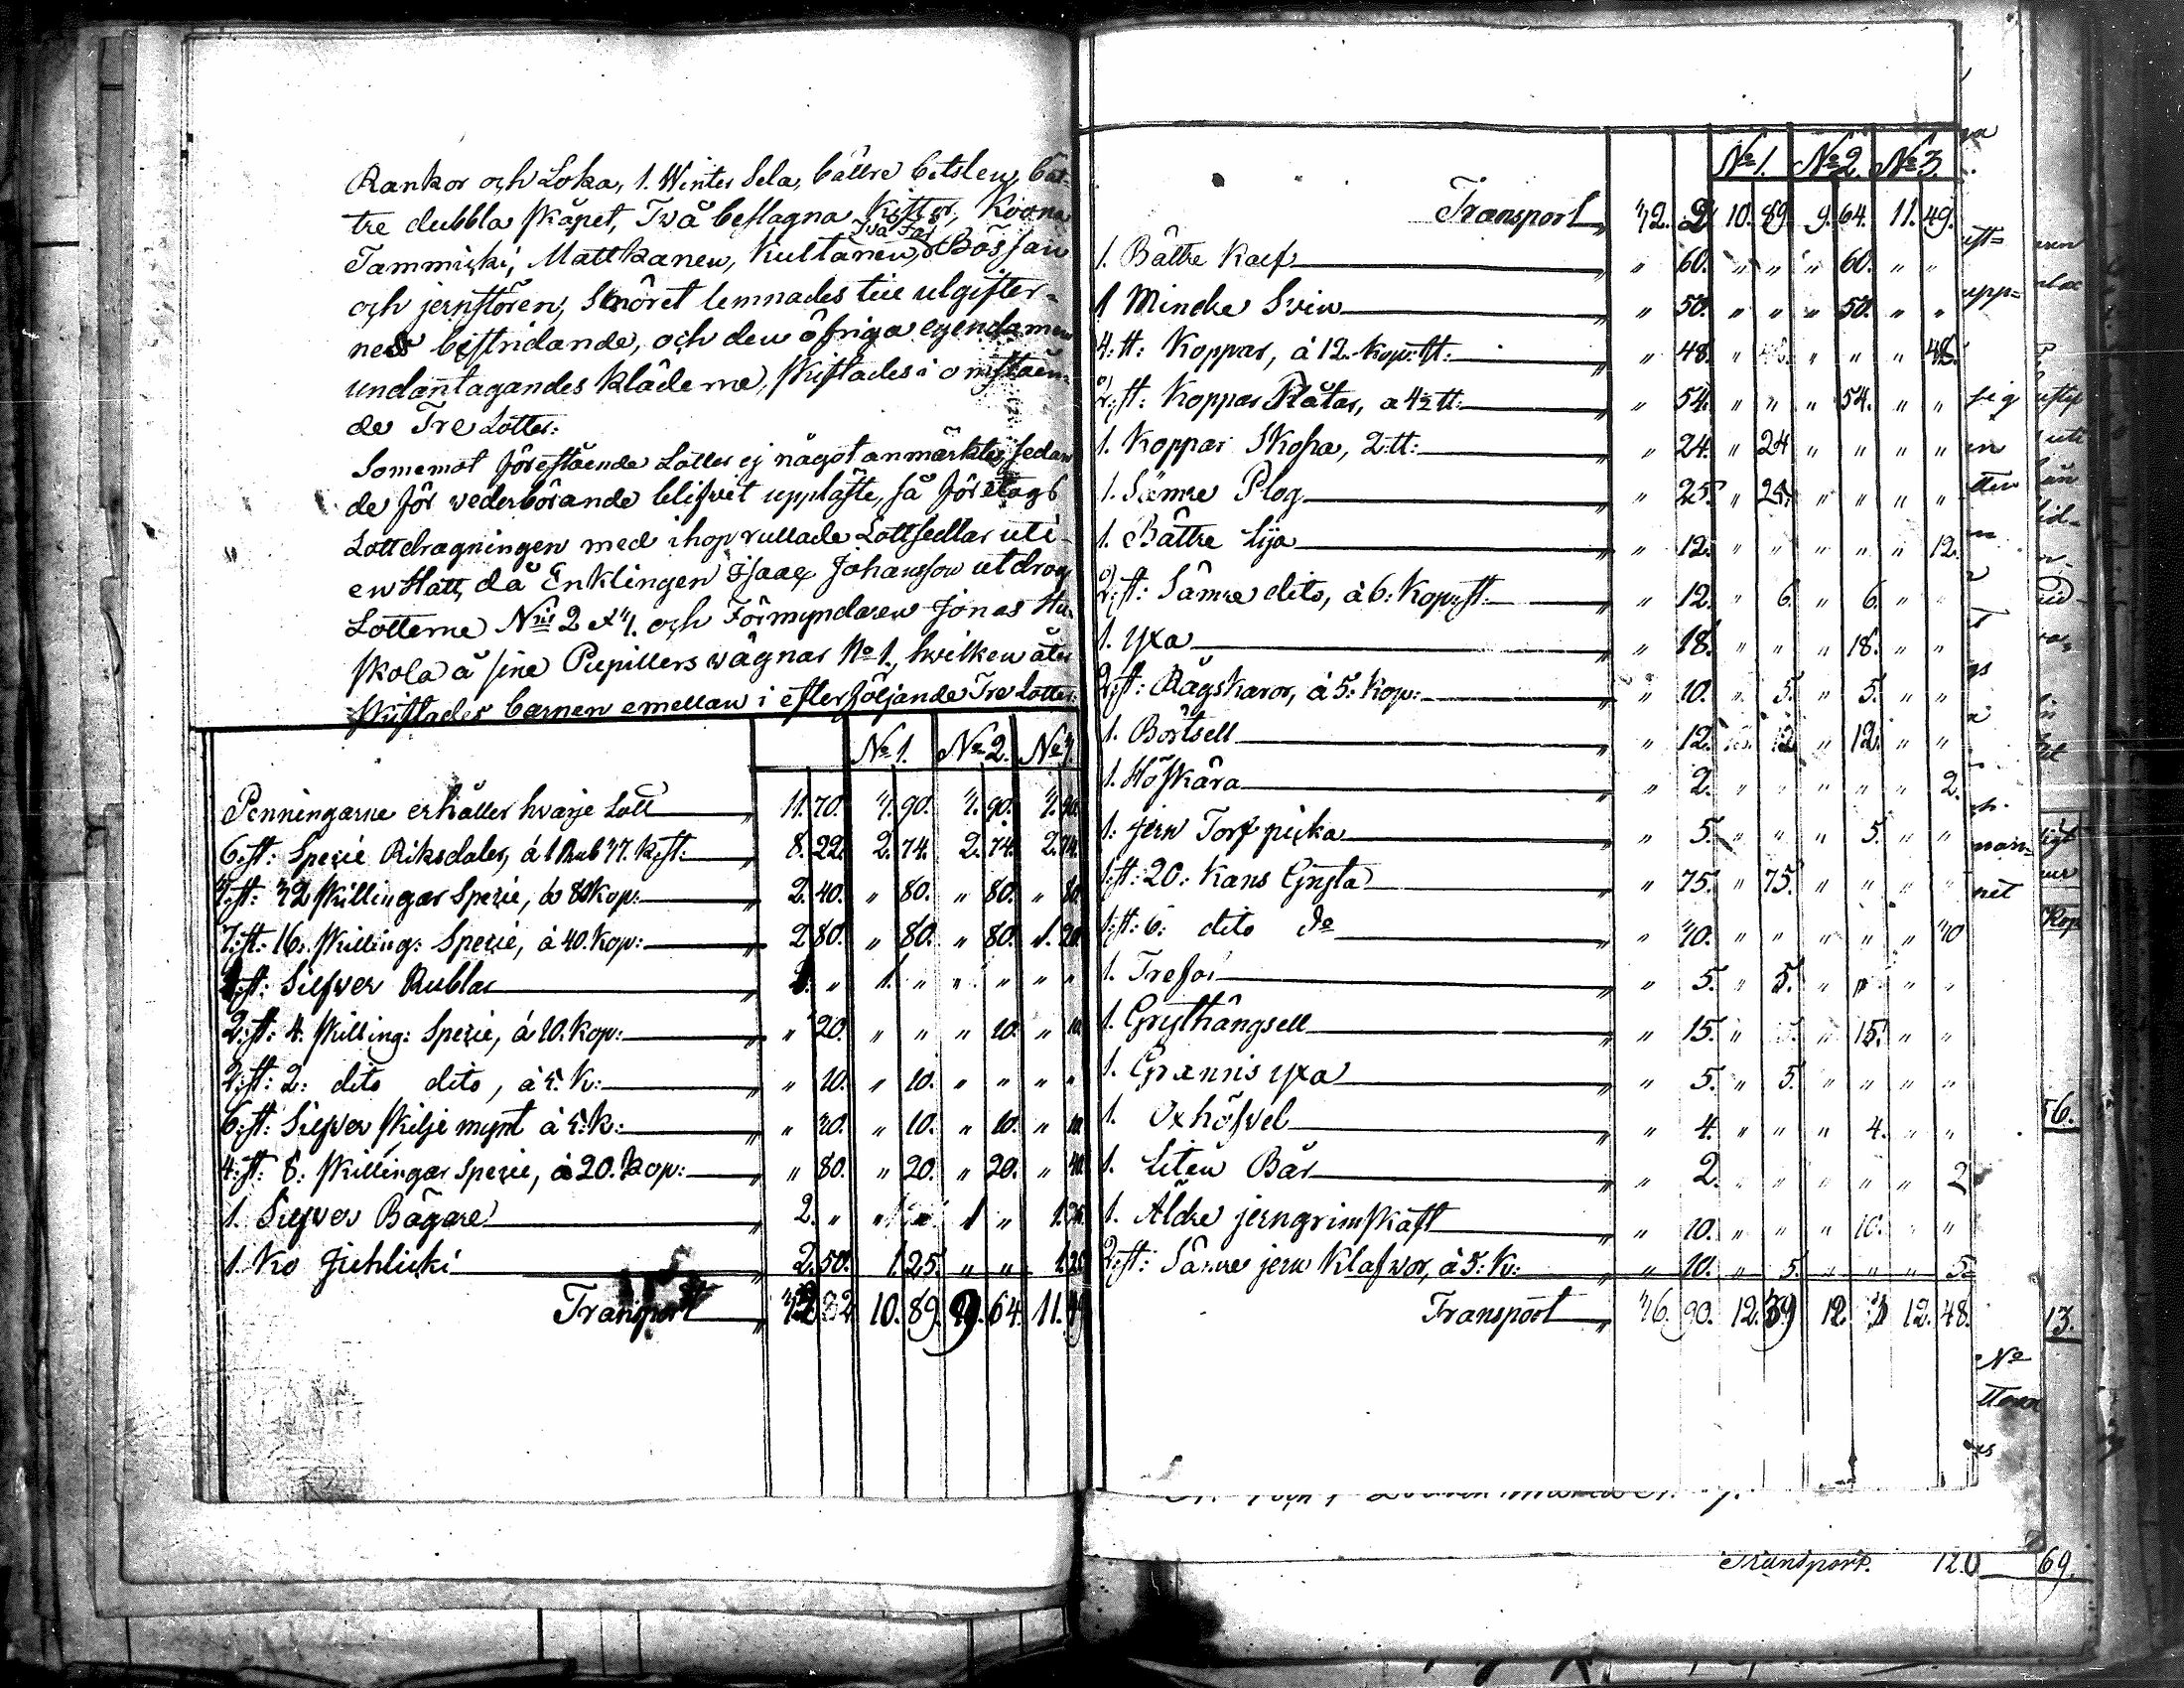 Rankor och Loka, 1. Winter Sela, bättre betslen, bät-
tre dubbla skåpet, Två beslagna Kistor, Koona
Två Får
Tammicki, Mattkanen, Kultanen, Bössan
och jernstören, Snöret lemnades till utgifter-
nes bestridande, och den öfriga egendomen
undantagandes kläderne, skiftades i omståen-
de Tre Lotter:
Som emot förestående Lotter ej något anmärktes sedan
de för vederbörande blifvit uppläste, så företogs
Lottdragningen med ihoprullade Lottsedlar uti
en Hatt, då Enklingen Isaac Johansson utdrog
Lotterne Nris 2 et 3. och Förmyndaren Jonas
skola å sine Pupillers wägnar No 1., hvilken åter
skiftades barnen emellan i efterföljande Tre Lotter:
No 1. No 2. No 3.
Penningarne erhåller hvarje Lott 11. 70. 3. 90. 3. 90. 3. 90.
6. st: Spezie Riksdaler, á 1 Rub 37. K. st: 8. 22. 2. 74. 2. 74. 2. 74.
3. st: 32 skillingar Spezie, á 80 kop: 2. 40. " 80. " 80. " 80.
7. st: 16. skilling: Spezie, á 40. kop: 2 80. " 80. " 80. 1. 20.
1. st: Silfver Rubler 1. " 1. " " " " "
2. st: 4. skilling: Spezie, á 10. kop: " 20. " " " 10. " 10.
2. st: 2: dito dito, á 5. K: " 10. " 10. " " " "
6. st: Silfver skilje mynt á 5: k: " 30. " 10. " 10. " 10.
4. st: 8: skillingar Spezie, á 20. kop: " 80. " 20. " 20. " 40.
1. Silfver Bägare 2. "
1. Ko Juhlicki 2. 50. 1. 25. " " 1. 25
Transport 32 82 10. 89. 9. 64. 11. 49
No 1. No 2. No 3.
Transport 32. 2 10. 89. 9. 64. 11. 49.
1. Bättre Kalf " 60. " " " 60. " "
1 Mindre Svin " 50. " " " 50. " "
4. tt: Koppar, á 12. kop: tt: " 48. " " " " " 48.
2. st: Koppar Plåtar, a 4½ tt: " 54. " " " 54. " "
1. Koppar Skopa, 2: tt: " 24. " 24 " " " "
1. Sämre Plog " 25. " 25. " " " "
1. Bättre Lija " 12. " " " " " 12.
2. st: Sämre dito, á 6: Kop: st: " 12. " 6. " 6. " "
1. Yxa " 18. " " " 18. " "
2. st: Rågskaror, á 5: Kop: " 10. " 5. " 5. " "
1. Börtsell " 12. " 12. " "
1. Höskära " 2. " " " " " 2.
1: jern Torfpicka " 5. " " " 5. " "
1. st: 20: Kans Gryta " 75. " 75. " " " "
1. st: 6: dito do " 30. " " " " " 30
1. Trefot " 5. " 5. " " " "
1. Grythängsell " 15. " " 15. " "
1. Grannis yxa " 5. " 5. " " " "
1. Oxhöfvel " 4. " " " 4. " "
1. Liten Bår " 2. " " " " " 2
1. Äldre jerngrimskaft " 10. " " " 10. " "
2. st: Sämre jern Klafwor, á 5: K: " 10. " 5. " " " 5.
Transport 36. 90. 12. 39 12. 3 12. 48.
Transport. 120 69.